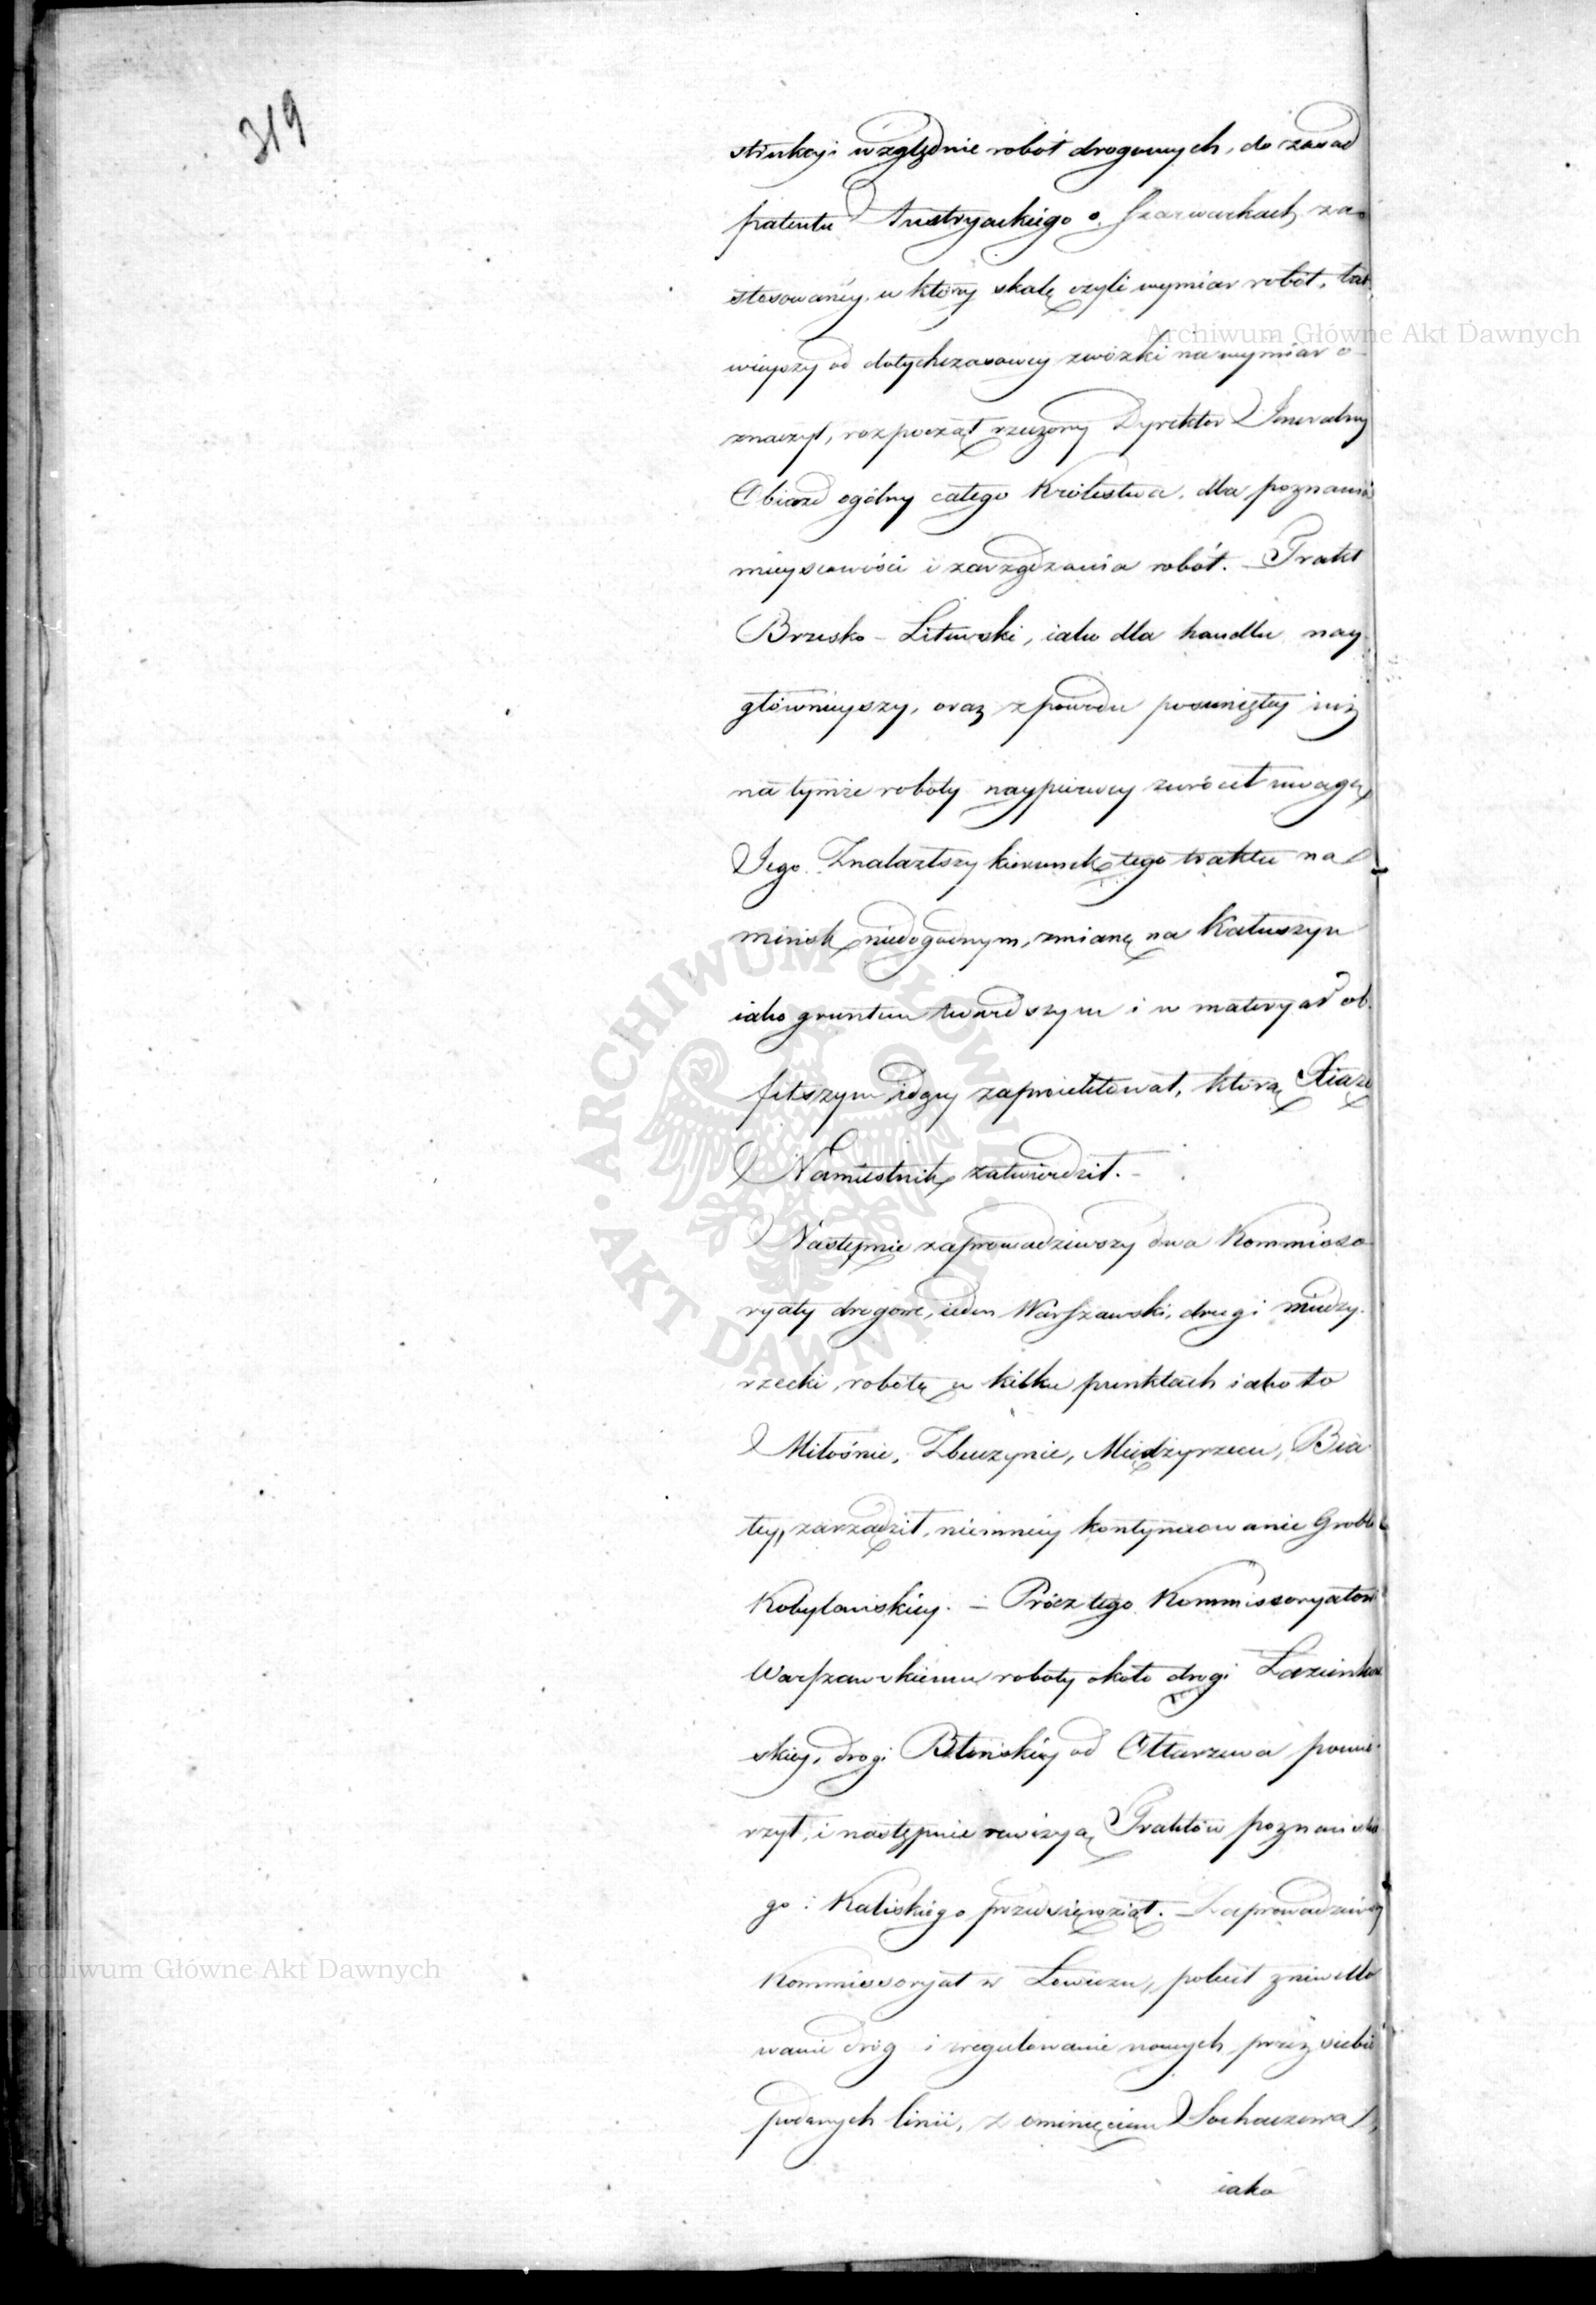 319
strukcyi względnie robót drogowych, do zasad
patentu Austryackiego o Szarwarkach za-
stosowaney, w który skalę czyli wymiar robót, łat
wieyszy od dotychczasowey zwózki na wymiar o-
znaczył, rozpoczął rzeczony Dyrektor Jeneralny
Obiazd ogólny całego Królestwa, dla poznania
mieyscowości i zarządzania robót. – Trakt
Brzesko – Litewski, iako dla handlu nay
głównieyszy, oraz z powodu posuniętey iuż
na tymże roboty naypierwey zwrócił uwagę
Jego. Znalazłszy kierunek tego traktu na
Mińsk niedogodnym, zmianę na Kałuszyn
iako gruntem twardszym i w materyał ob-
fitszym idącą zaproiektował, którą Xiąże
Namiestnik zatwierdził. –
Następnie zaprowadziwszy dwa Kommissa-
ryaty drogowe, ieden Warszawski, drugi Miedzy-
rzecki, robotę w kilku punktach iako to
Miłośnie, Zbuczynie, Międzyrzecu, Bia
łey, zarządził, niemniey kontynuowanie Grobli
Kobylańskiey. – Prócz tego Kommissaryatowi
Warszawskiemu roboty około drogi Łazienkow
skiey, drogi Błońskiey od Ołtarzewa powie-
rzył, i następnie rewizyą Traktów poznańskie
go i Kaliskiego przedsięwziął. – Zaprowadziwszy
Kommissoryat w Łowiczu, polecił zniwello
wanie dróg i uregulowanie nowych przez siebie
podanych linii, z ominięciem Sochaczewa,
iako
Archiwum Główne Akt Dawnych
Archiwum Główne Akt Dawnych
ARCHIWUM GŁÓWNE AKT DAWNYCH